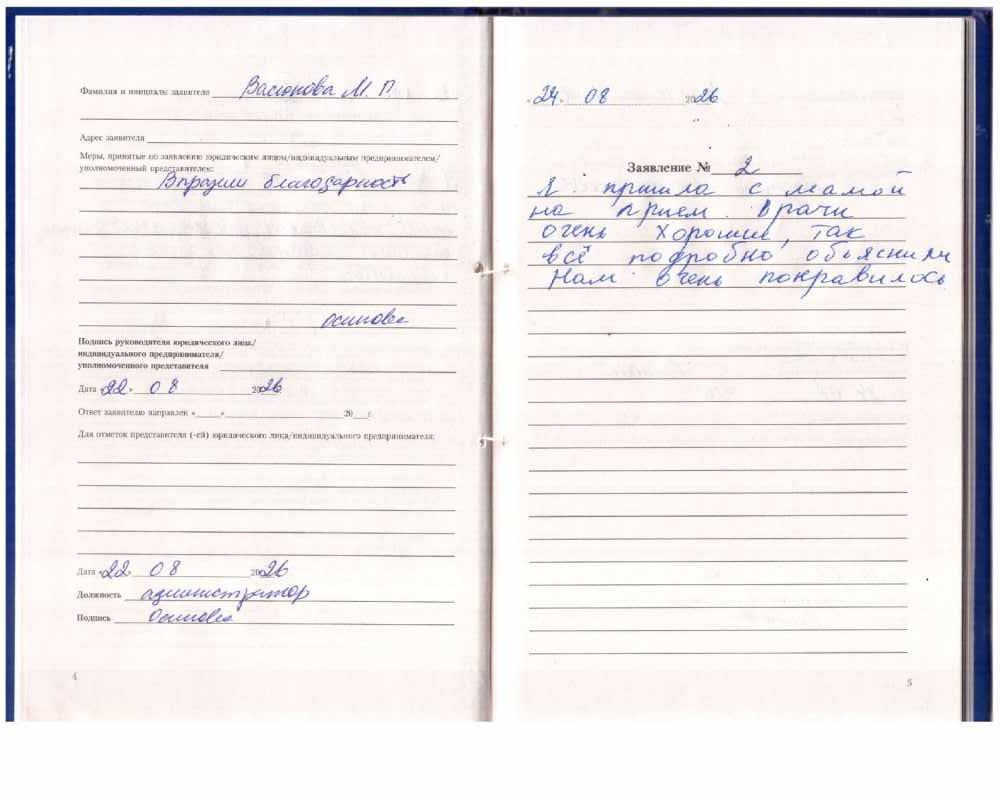 Фамилия и инициалы заявителя Васюкова М. П.
Адрес заявителя
Меры, принятые по заявлению юридическим лицом/индивидуальным предпринимателем/
уполномоченный представителем:
Выразили благодарность
осипова
Подпись руководителя юридического лица/
индивидуального предпринимателя/
уполномоченного представителя
Дата «22» 08 2026
Ответ заявителю направлен «___» 20___г.
Для отметок представителя (-ей) юридического лица/индивидуального предпринимателя:
Дата «22» 08 2026
Должность администратор
Подпись Осипова
4
«24» 08 2026
Заявление № 2
Я пришла с мамой
на прием. Врачи
очень хорошие, так
всё подробно объяснили
Нам очень понравилось
5